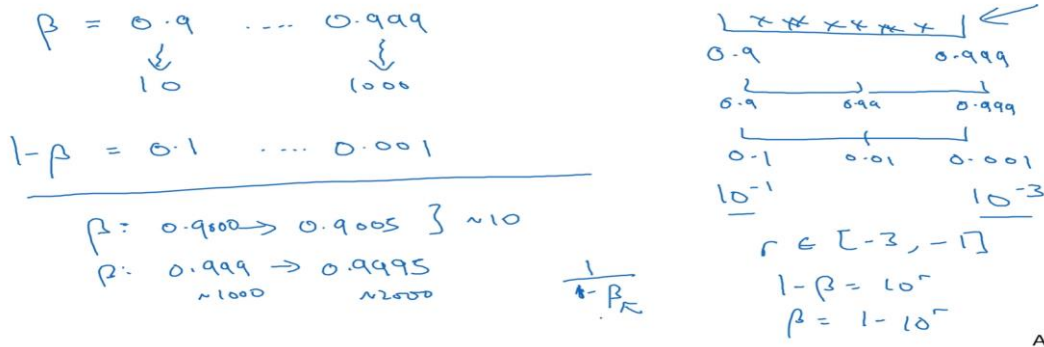 β = 0.9 ..... 0.999
10 1000
1-β = 0.1 ..... 0.001
β: 0.9000 → 0.9005 } ~10
β: 0.999 → 0.9995
~1000 ~2000
1
1-β
0.9 0.999
0.9 0.99 0.999
0.1 0.01 0.001
10⁻¹ 10⁻³
r ∈ [-3, -1]
1-β = 10ʳ
β = 1-10ʳ
A